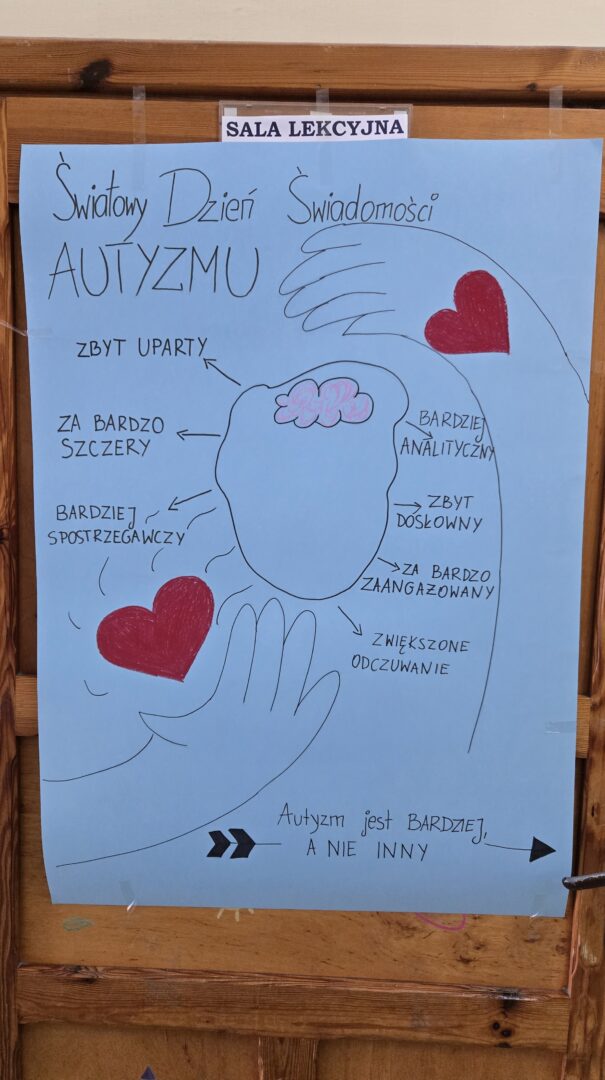 SALA LEKCYJNA
Światowy Dzień Świadomości
AUTYZMU
ZBYT UPARTY
ZA BARDZO
SZCZERY
BARDZIEJ
SPOSTRZEGAWCZY
BARDZIEJ
ANALITYCZNY
ZBYT
DOSŁOWNY
ZA BARDZO
ZAANGAZOWANY
ZWIĘKSZONE
ODCZUWANIE
Autyzm jest BARDZIEJ,
A NIE INNY